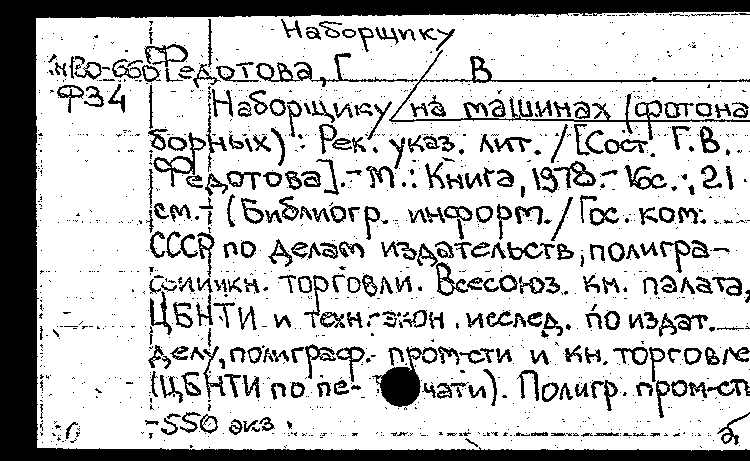 Наборщику
Федотова, Г В
Ф34
Наборщику на машинах (фотона
борных): Рек. указ. лит. / [Сост. Г.В.
Федотова].- М.: Книга, 1978.- 16с.; 21
см.- (Библиогр. информ. / Гос. ком.
СССР по делам издательств, полигра-
фии и кн. торговли. Всесоюз. кн. палата,
ЦБНТИ и техн.-экон. исслед. по издат.
делу, полиграф. пром-сти и кн. торговле
(ЦБНТИ по пе- чати). Полигр. пром-сть
-550 экз.